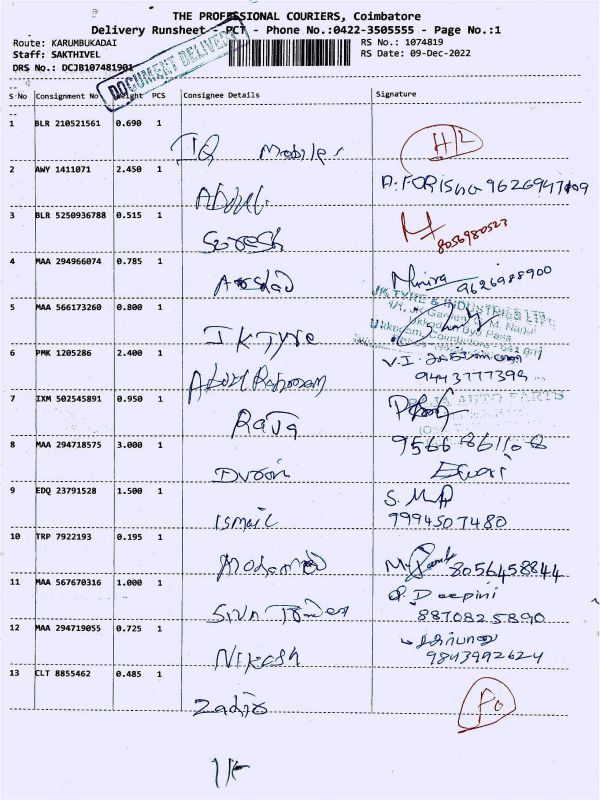 THE PROFESSIONAL COURIERS, Coimbatore
Delivery Runsheet - PCT - Phone No.:0422-3505555 - Page No.:1
Route: KARUMBUKADAI RS No.: 1074819
Staff: SAKTHIVEL RS Date: 09-Dec-2022
DRS No.: DCJB107481901
DOCUMENT DELIVERY
S No Consignment No Weight PCS Consignee Details Signature
1 BLR 210521561 0.690 1
IQ Mobiles H/L
2 AWY 1411071 2.450 1
Abdul
3 BLR 5250936788 0.515 1
Suresh 8056980523
4 MAA 294966074 0.785 1
Arshad Munira 9626988900
JK TYRE & INDUSTRIES LTD.
5 MAA 566173260 0.800 1
JK Tyre
6 PMK 1205286 2.400 1
V.I.
Abdul Rahman 9443777399
7 IXM 502545891 0.950 1
RAJA AUTO PARTS
Raja
8 MAA 294718575 3.000 1
9566861108
9 EDQ 23791528 1.500 1
S.M.A
Ismail 9994507480
10 TRP 7922193 0.195 1
Mohamed 8056458844
11 MAA 567670316 1.000 1
Deepini
8870825890
12 MAA 294719055 0.725 1
Nikesh 9843992624
13 CLT 8855462 0.485 1